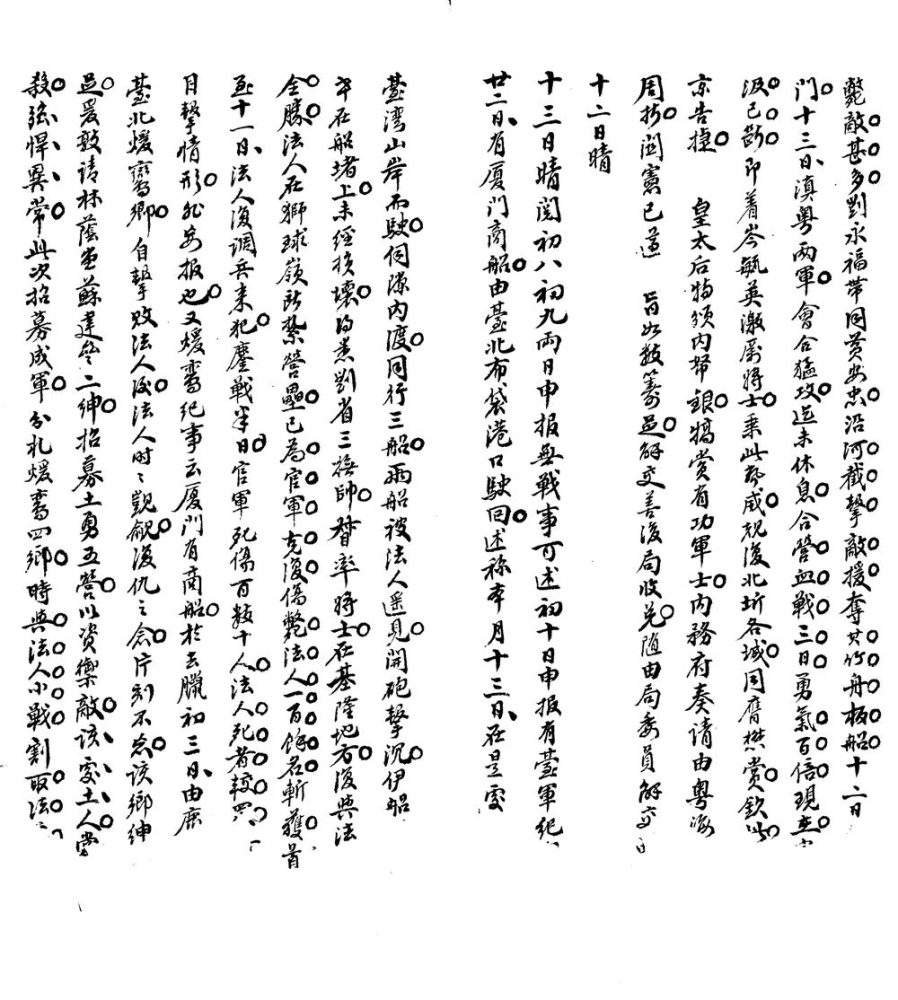 斃敵甚多劉永福帶同黃安忠沿河截擊敵援奪其竹舟板船十二日
門十三日滇粵兩軍會合猛攻迄未休息合營血戰三日勇氣百倍現在
汲已斷即着岑毓英激厲將士乘此聲威規復北圻各城同膺懋賞欽此
京告捷 皇太后特頒內帑銀犒賞有功軍士內務府奏請由粵海
周折閻憲已遵 旨如數籌足解交善後局收兌隨由局委員解交
十二日晴
十三日晴閱初八初九兩日申报無戰事可述初十日申报有臺軍紀
廿二日有厦门商船由臺北布袋港口駛回述稱本月十三日在是處
臺湾山岸而駛伺隙內渡同行三船兩船被法人遥見開砲擊沉伊船
幸在船堵上未經損壞均悉劉省三撫帥督率將士在基隆地方復與法
全勝法人在獅球嶺所紮營壘已為官軍克復傷斃法人一百餘名斬獲首
至十一日法人復調兵來犯鏖戰半日官軍死傷百數十人法人死者較四
目擊情形飛告报也又煖鸾紀事云厦门有商船於去臘初三日由鹿
臺北煖鸞鄉自擊敗法人後法人时々覬覦復仇之念片刻不忘該鄉紳
是爰敦请林蔭堂蘇建參二紳招募土勇五營以资禦敵該處土人
殺强悍異常此次招募成軍分札煖鸾四鄉時與法人小戰割取法